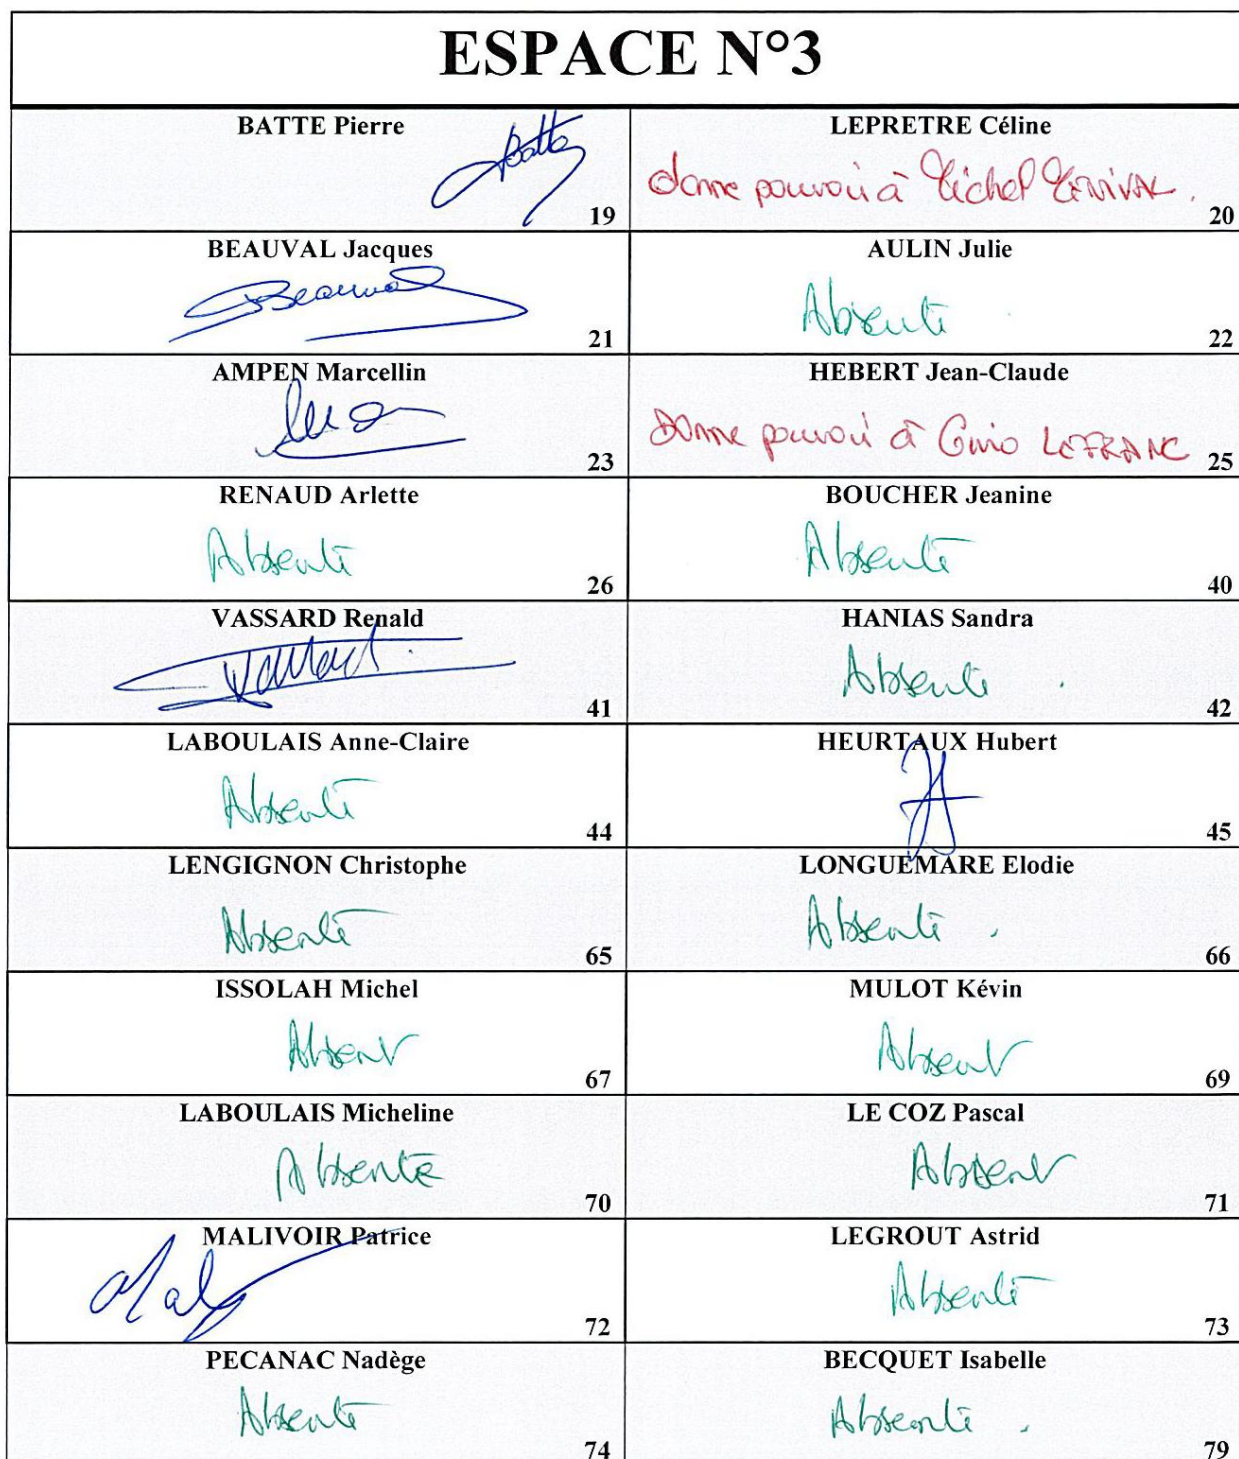 ESPACE N°3
BATTE Pierre
Batte
19
LEPRETRE Céline
donne pouvoir à Michel
20
BEAUVAL Jacques
Beauval
21
AULIN Julie
Absente
22
AMPEN Marcellin
23
HEBERT Jean-Claude
donne pouvoir à Gino LEFRANC
25
RENAUD Arlette
Absente
26
BOUCHER Jeanine
Absente
40
VASSARD Renald
41
HANIAS Sandra
Absente
42
LABOULAIS Anne-Claire
Absente
44
HEURTAUX Hubert
45
LENGIGNON Christophe
Absente
65
LONGUEMARE Elodie
Absente
66
ISSOLAH Michel
Absent
67
MULOT Kévin
Absent
69
LABOULAIS Micheline
Absente
70
LE COZ Pascal
Absent
71
MALIVOIR Patrice
72
LEGROUT Astrid
Absente
73
PECANAC Nadège
Absente
74
BECQUET Isabelle
Absente
79